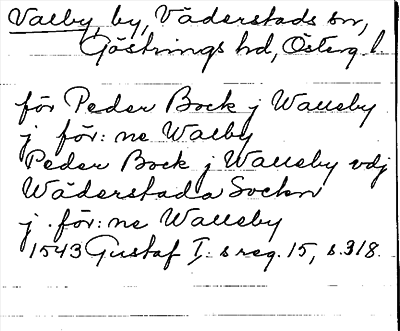 Valby, by, Väderstads sn,
Göstrings hd, Österg. l.
för Peder Bock j Walleby
j för: ne Walby
Peder Bock j Walleby vdj
Wäderstada Sockn
j. för: ne Walleby
1543 Gustaf I: s reg. 15, s. 318.